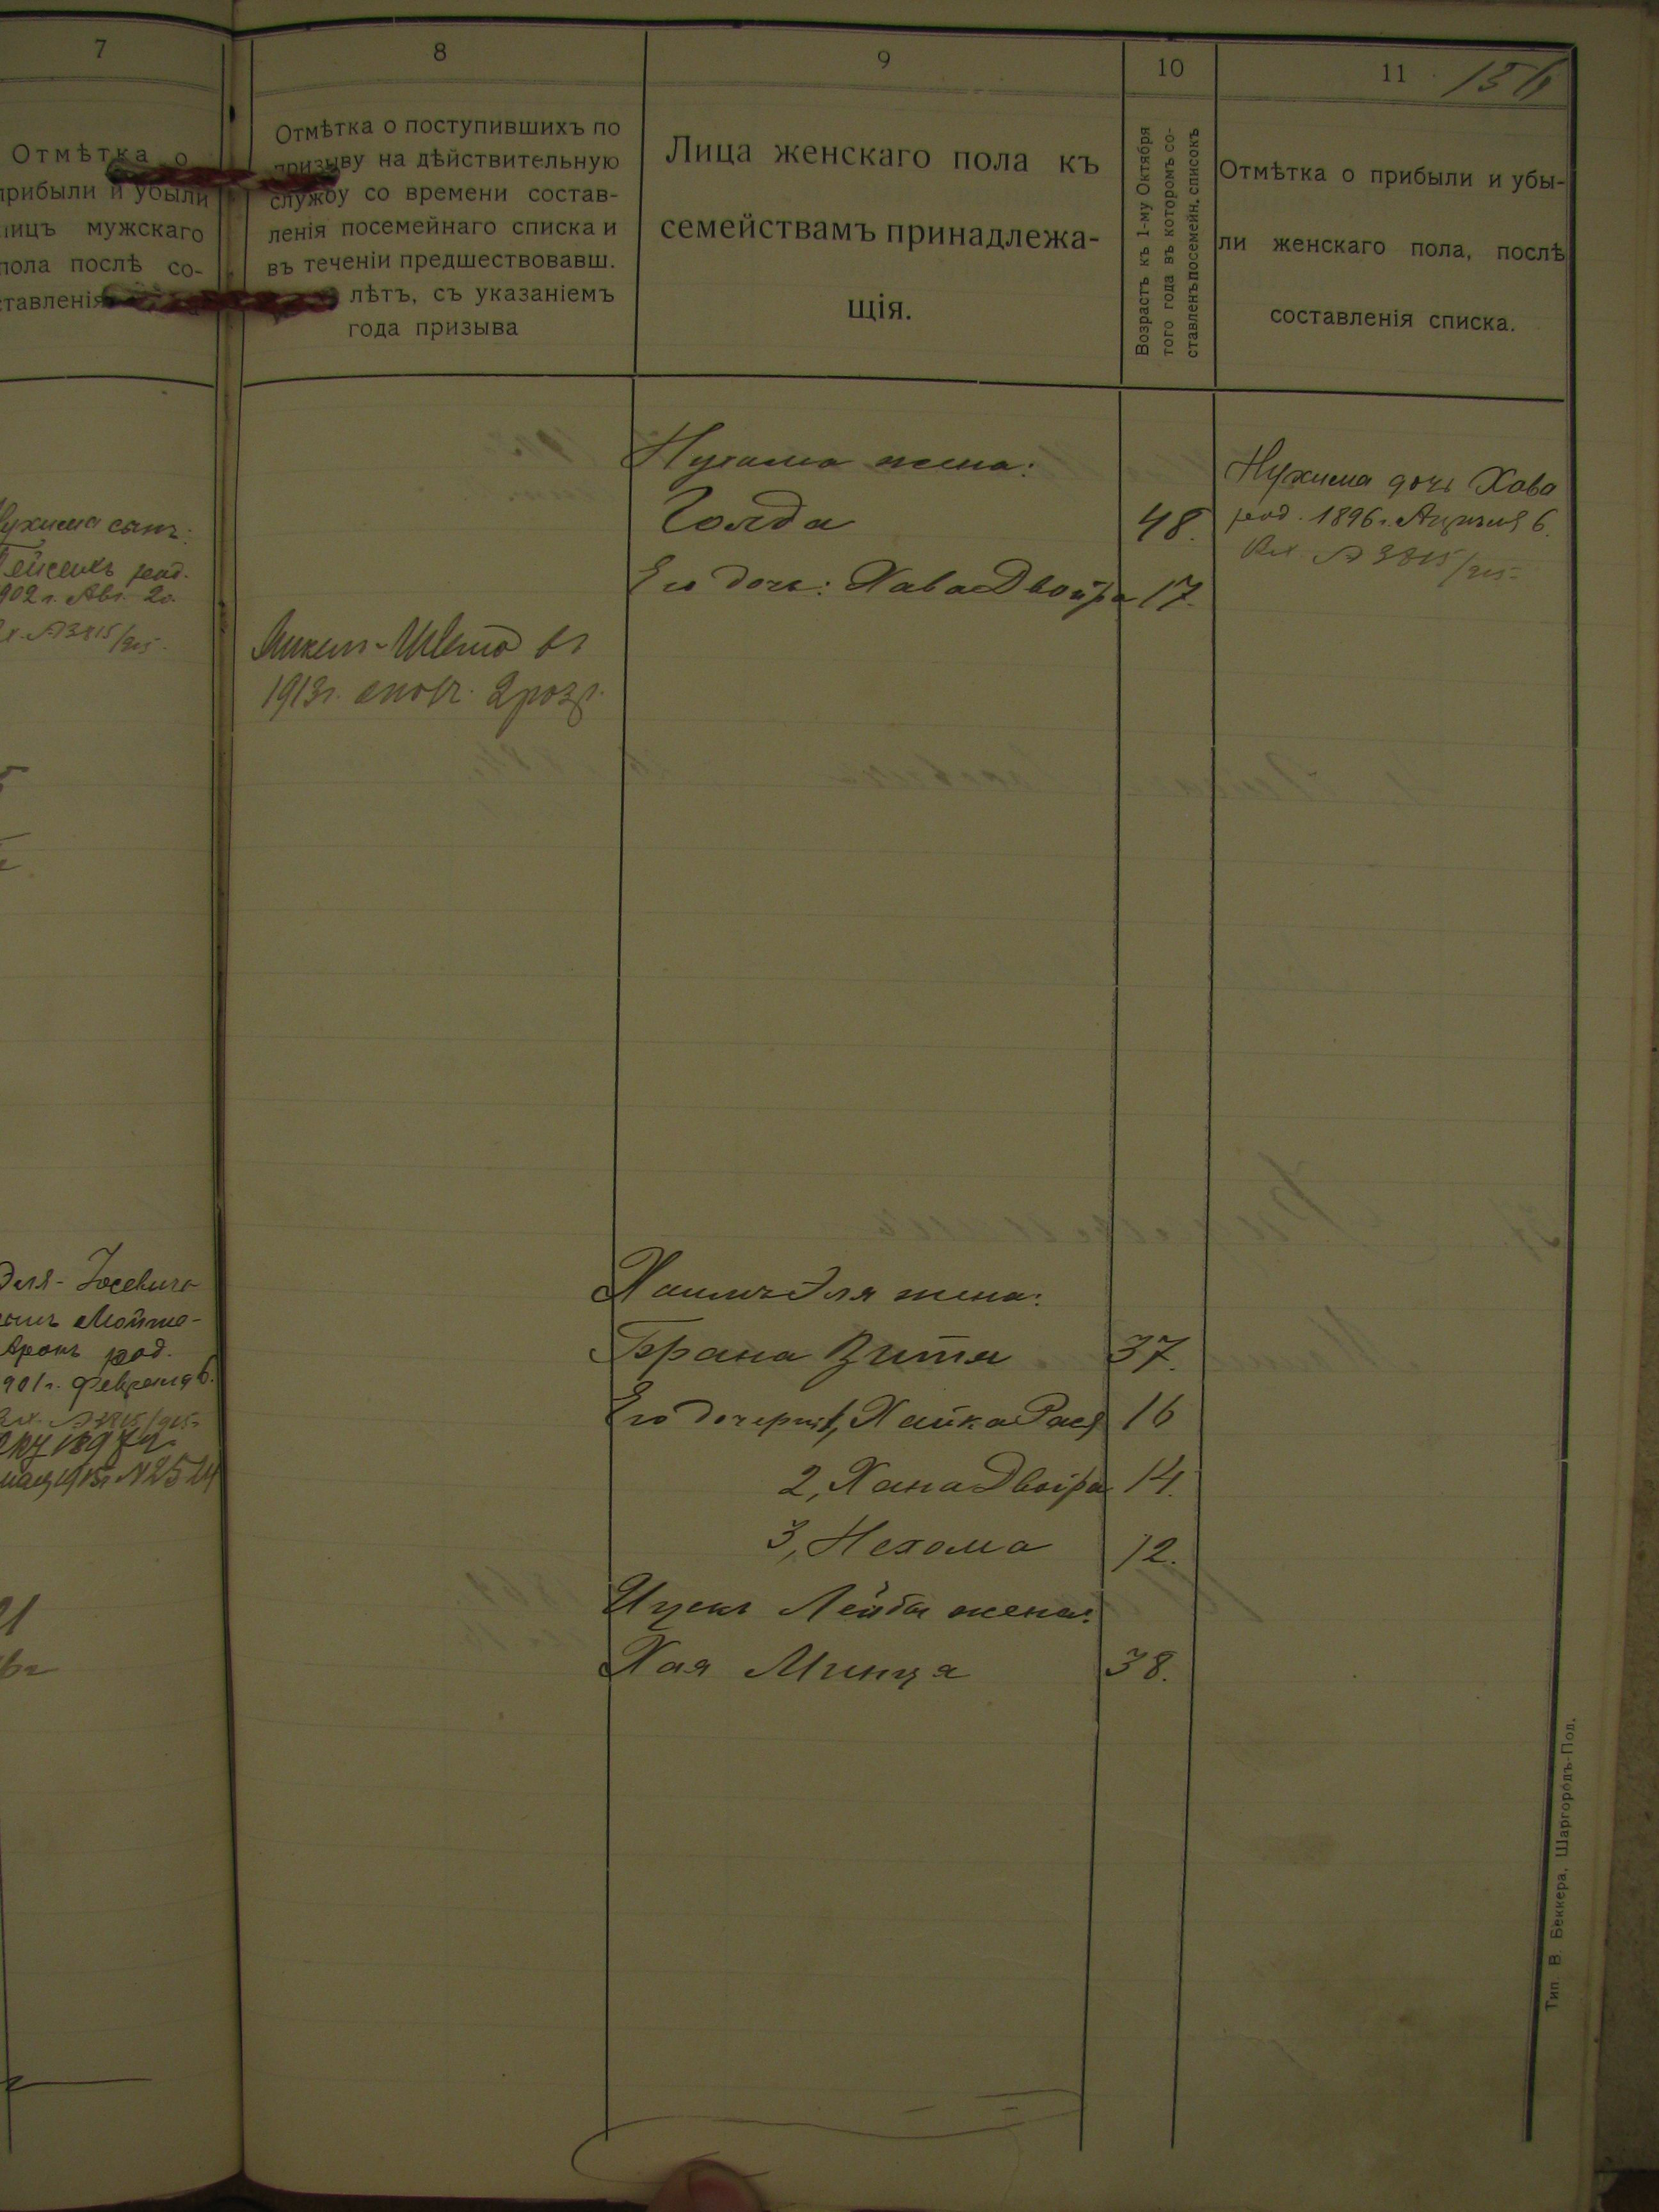 7
8
9
10
11
156
Отмѣтка о
прибыли и убыли
лицъ мужскаго
пола послѣ со-
ставленія
Отмѣтка о поступившихъ по
призыву на дѣйствительную
службу со времени состав-
ленія посемейнаго списка и
въ теченіи предшествовавш.
лѣтъ, съ указаніемъ
года призыва
Лица женскаго пола къ
семействамъ принадлежа-
щія.
Возрастъ къ 1-му Октября
того года въ которомъ со-
ставленъ посемейн. списокъ
Отмѣтка о прибыли и убы-
ли женскаго пола, послѣ
составленія списка.
Нухима сынъ:
род.
902 г. Авг. 20.
3815/915.
въ
1913 г. 2 розр.
Нухима жена:
Голда 48.
Его дочь: Хава Двойра 17.
Нухима дочь Хава
род. 1896 г. Апреля 6.
Вх. № 3815/915.
Эля-
сынъ Мойше-
Аронъ род.
901 г. Февраля 6.
Вх. № 3815/915.
1897
1915 г. № 2524
21
Хаимъ Эля жена:
Брана Зитя 37.
Его дочери: 1, Хайка Рася 16
2, Хана Двойра 14.
3, Нехома 12.
Ицекъ Лейба жена:
Хая Минця 38.
Тип. В. Беккера, Шаргородъ-Под.